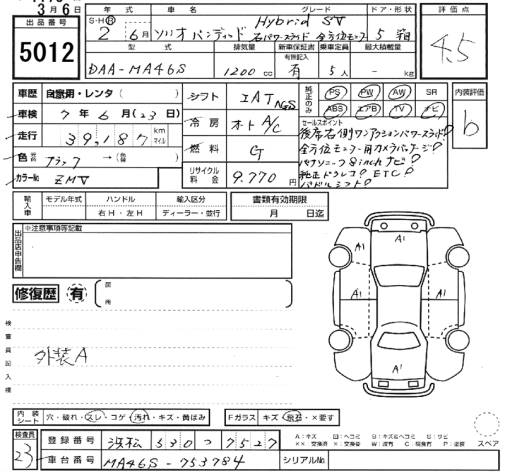 3月6日
出品番号
5012
年式 車名 グレード ドア・形状
S・H・R 2年6月 ソリオ バンディット Hybrid SV
右パワースライド 全方位モニター 5 箱
型式 排気量 新車保証書 乗車定員 最大積載量
有無記入
DAA-MA46S 1200cc 有 5人 - kg
評価点
4.5
車歴 自家用・レンタ( )
車検 7年6月(23日)
走行 39,187 km マイル
色 ブラック → 色( )
カラーNo ZMV
シフト IAT
冷房 オートA/C
燃料 G
リサイクル料金 9,770円
純正のみ
PS PW AW SR
ABS エアB TV ナビ
セールスポイント
後席右側ワンアクションパワースライド!
全方位モニター用カメラパッケージ!
パナソニック8inchナビ!
純正ドラレコ! ETC!
パドルシフト!
内装評価
b
輸入車 モデル年式 ハンドル 輸入区分
右H・左H ディーラー・並行
書類有効期限
月 日迄
出品店申告欄
※注意事項等記載
修復歴 有
検査員記入欄
外装A
A1
A1 A1
A1 A1
A1
内装シート 穴・破れ・スレ・コゲ・汚れ・キズ・黄ばみ
Fガラス キズ・飛石・×要す
検査員
23
登録番号 浜松 530 つ 7527
車台番号 MA46S-753784
シリアルNo
スペア